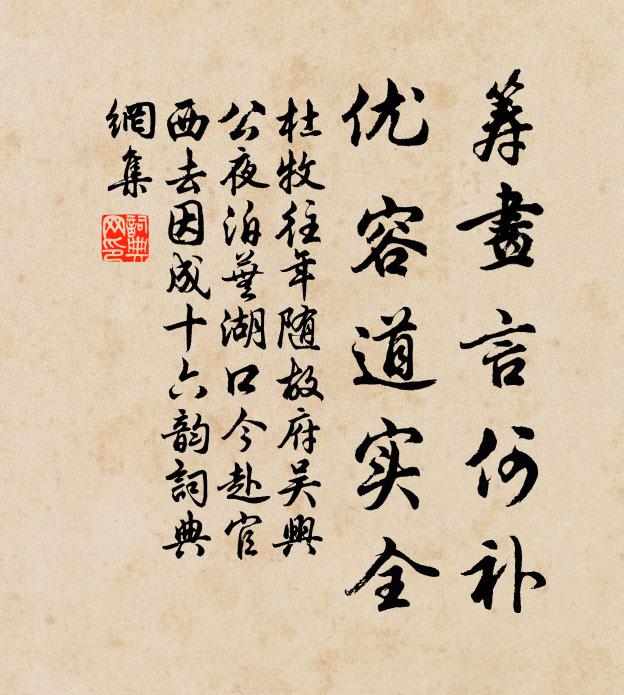 筹畫言何补
优容道实全
杜牧往年随故府吴興
公夜泊蕪湖口今赴官
西去因成十六韵詞典
網集
詞典網印